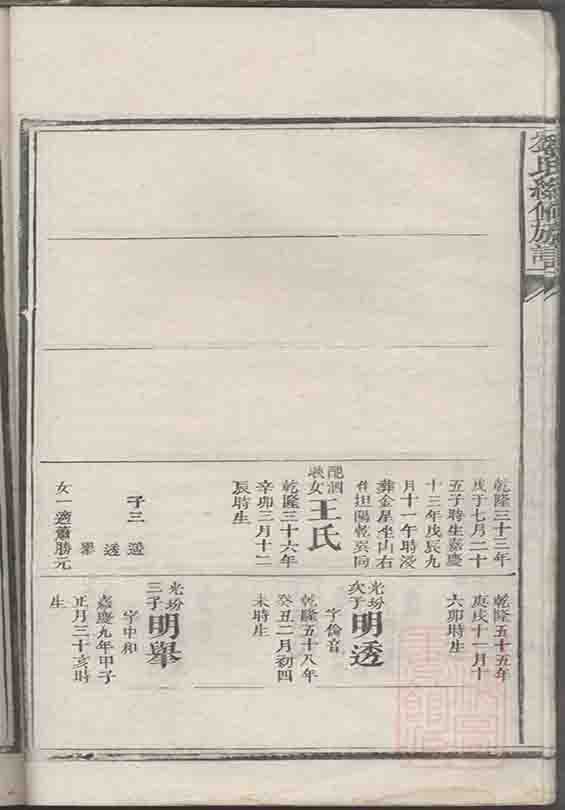 氏續修族譜
乾隆三十三年
戊子七月二十
五子時生嘉慶
十三年戊辰九
月十一午時沒
葬金星坐山右
坦陽乾亥向
配泗
女王氏
乾隆三十六年
辛卯三月十二
辰時生
子三
透
舉
女一適蕭勝元
乾隆五十五年
庚戌十一月十
六卯時生
光玢次子明透
字倫音
乾隆五十八年
癸丑二月初四
未時生
光玢三子明舉
字中和
嘉慶九年甲子
正月三十亥時
生